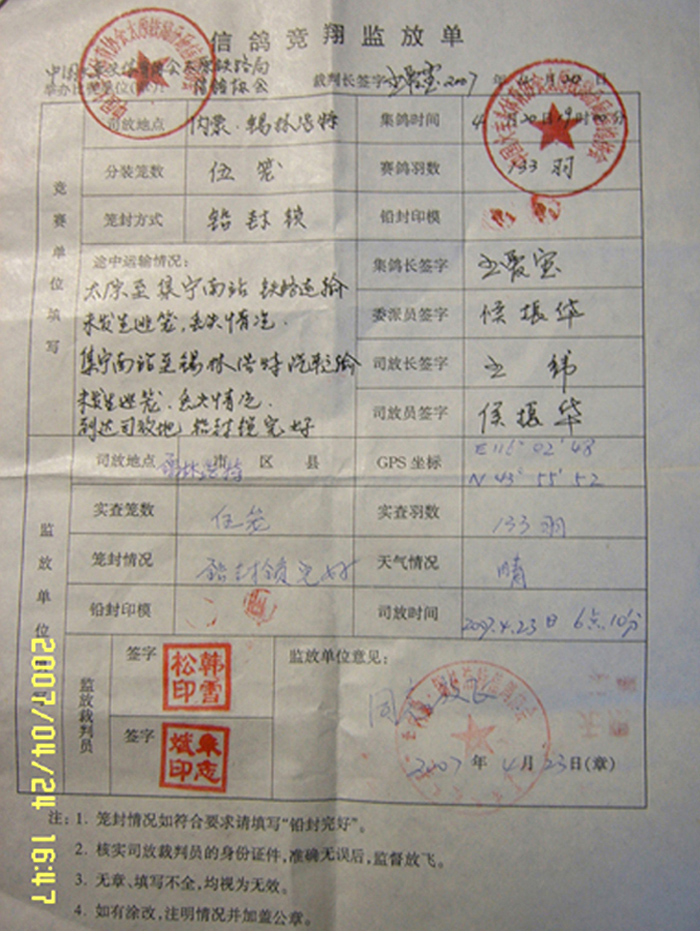 信鸽竞翔监放单
裁判长签字 王爱宝 2007 年 4 月 20 日
信鸽协会
竞赛单位填写
司放地点 内蒙.锡林浩特 集鸽时间 4月20日19时00分
分装笼数 伍笼 赛鸽羽数 133羽
笼封方式 铅封锁 铅封印模
途中运输情况： 集鸽长签字 王爱宝
太原至集宁南站铁路运输
未发生逃笼、丢失情况. 委派员签字 侯振华
集宁南站至锡林浩特汽车运输 司放长签字 王 纬
未发生逃笼、丢失情况.
到达司放地 铅封锁完好 司放员签字 侯振华
监放单位
司放地点 锡林浩特 市 区 县 GPS 坐标 E 116° 02' 48
N 43° 55' 52
实查笼数 伍笼 实查羽数 133羽
笼封情况 铅封锁完好 天气情况 晴
铅封印模 司放时间 2007.4.23日 6点10分
监放裁判员
签字 韩雪松印
签字 志斌印
监放单位意见：
同意放飞
2007 年 4 月 23 日(章)
注：1. 笼封情况如符合要求请填写“铅封完好”。
2. 核实司放裁判员的身份证件,准确无误后,监督放飞。
3. 无章、填写不全,均视为无效。
4. 如有涂改,注明情况并加盖公章。
2007/04/24 16:47